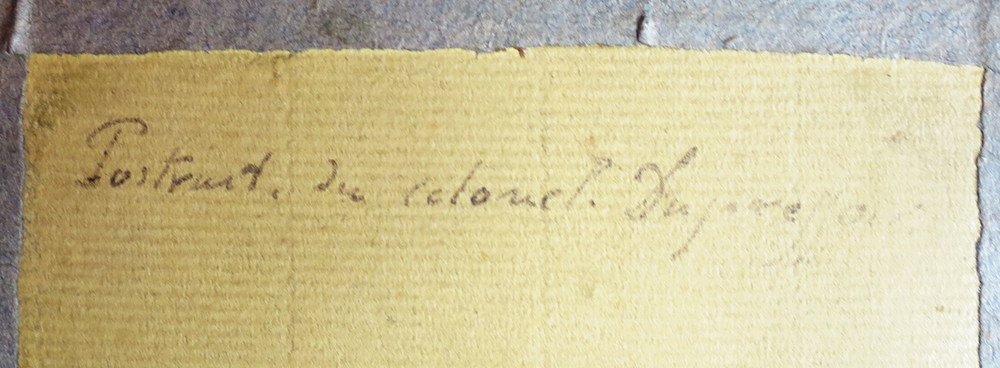 Portrait du colonel